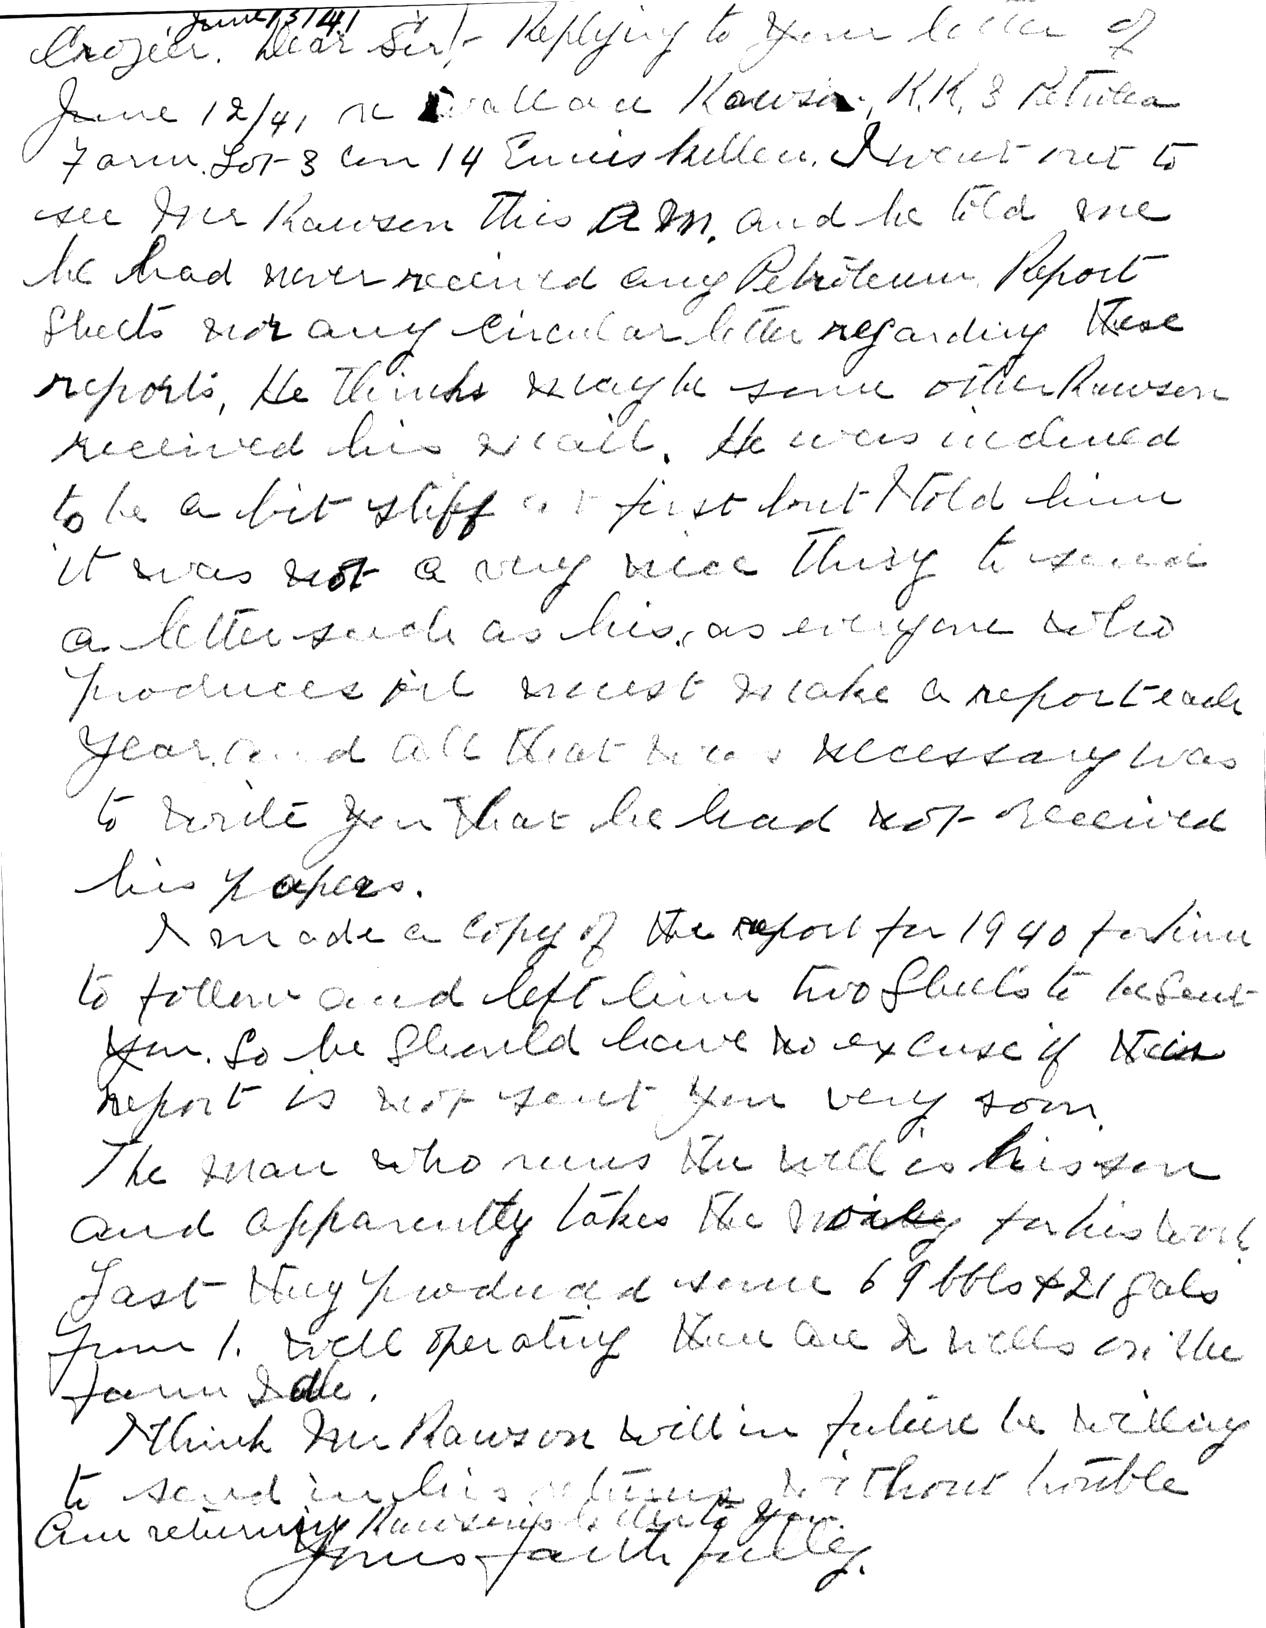 June 13/41
Crozier. Dear Sir:- Replying to your letter of
June 12/41 re Wallace Rawson, R.R. 3 Petrolea
Farm. Lot 3 Con 14 Enniskillen. I went out to
see Mr Rawson this A.M. and he told me
he had never received any Petroleum Report
Sheets nor any circular letter regarding these
reports, He thinks maybe some other Rawson
received his mail. He was inclined
to be a bit stiff at first but I told him
it was not a very nice thing to send
a letter such as his, as everyone who
produces oil must make a report each
year. and all that was necessary was
to write you that he had not received
his papers.
I made a copy of the report for 1940 for him
to follow and left him two Sheets to be sent
you. So he should have no excuse if this
report is not sent you very soon.
The man who runs the well is his son
and apparently takes the for his work
Last they produced some 69 bbls & 21 gals
from 1. well operating there are 2 wells on the
farm Idle.
I think Mr Rawson will in future be willing
to send in his returns without trouble
Am returning Rawsons letter to you
Yours faithfully.